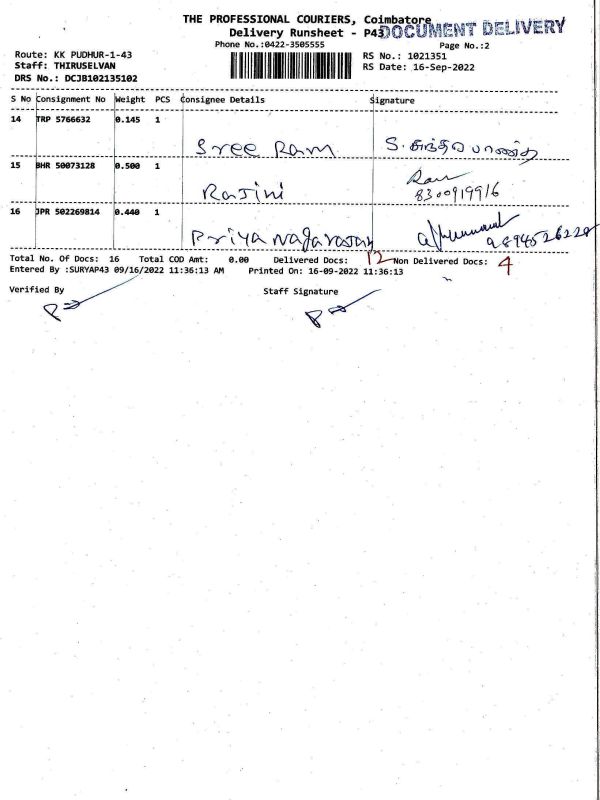 THE PROFESSIONAL COURIERS, Coimbatore
Delivery Runsheet - P43
DOCUMENT DELIVERY
Phone No.:0422-3505555
Page No.:2
Route: KK PUDHUR-1-43
RS No.: 1021351
Staff: THIRUSELVAN
RS Date: 16-Sep-2022
DRS No.: DCJB102135102
S No Consignment No Weight PCS Consignee Details Signature
14 TRP 5766632 0.145 1
Sree Ram
15 BHR 50073128 0.500 1
Rajini
8300919916
16 JPR 502269814 0.440 1
Priya Nagarajan
9894526228
Total No. Of Docs: 16 Total COD Amt: 0.00 Delivered Docs: 12 Non Delivered Docs: 4
Entered By :SURYAP43 09/16/2022 11:36:13 AM Printed On: 16-09-2022 11:36:13
Verified By Staff Signature